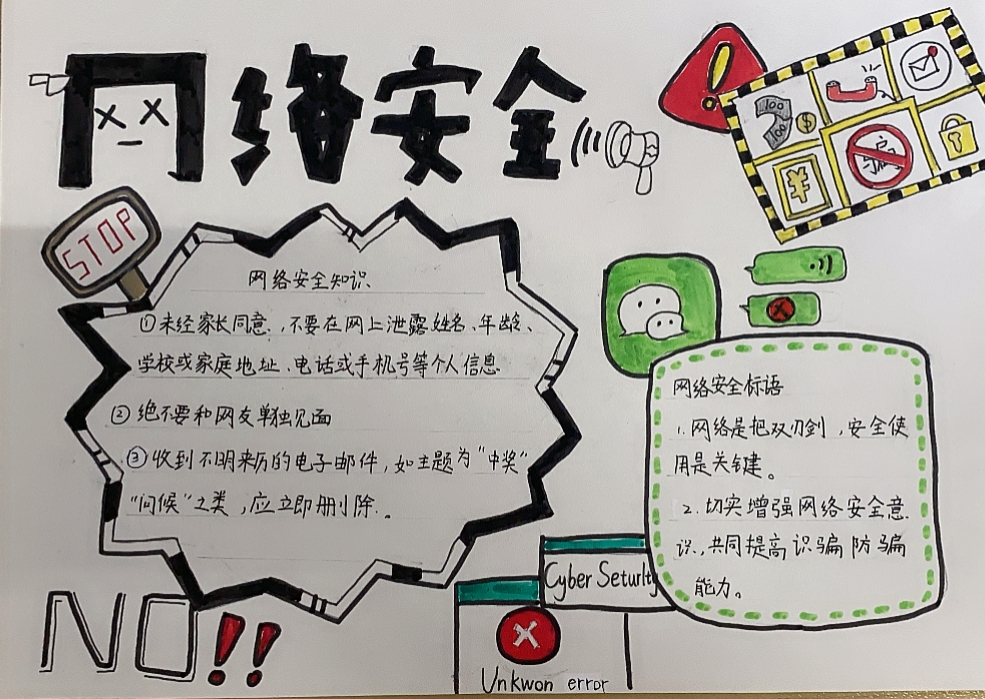 网络安全
STOP
网络安全知识
①未经家长同意，不要在网上泄露姓名、年龄、
学校或家庭地址、电话或手机号等个人信息
②绝不要和网友单独见面
③收到不明来历的电子邮件，如主题为“中奖”
“问候”之类，应立即删除。
NO!!
100
100
$
¥
骗
网络安全标语
1.网络是把双刃剑，安全使
用是关键。
2.切实增强网络安全意
识，共同提高识骗防骗
能力。
Cyber Seturity
Unkwon error